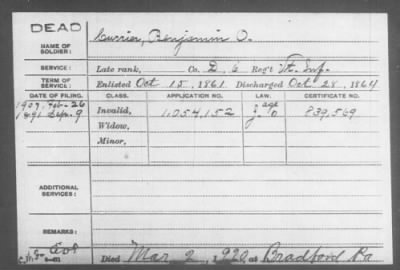 DEAD
NAME OF SOLDIER: Currier, Benjamin O.
SERVICE: Late rank, Co. D, 6 Reg't Vt. Inf.
TERM OF SERVICE: Enlisted Oct 15, 1861 Discharged Oct 28, 1864
DATE OF FILING. CLASS. APPLICATION NO. LAW. CERTIFICATE NO.
1907, Feb. 26 age
1891 Sep. 9 Invalid, 1,054,152 839,569
Widow,
Minor,
ADDITIONAL SERVICES:
REMARKS:
Died Mar 2, 1920, at Bradford Pa